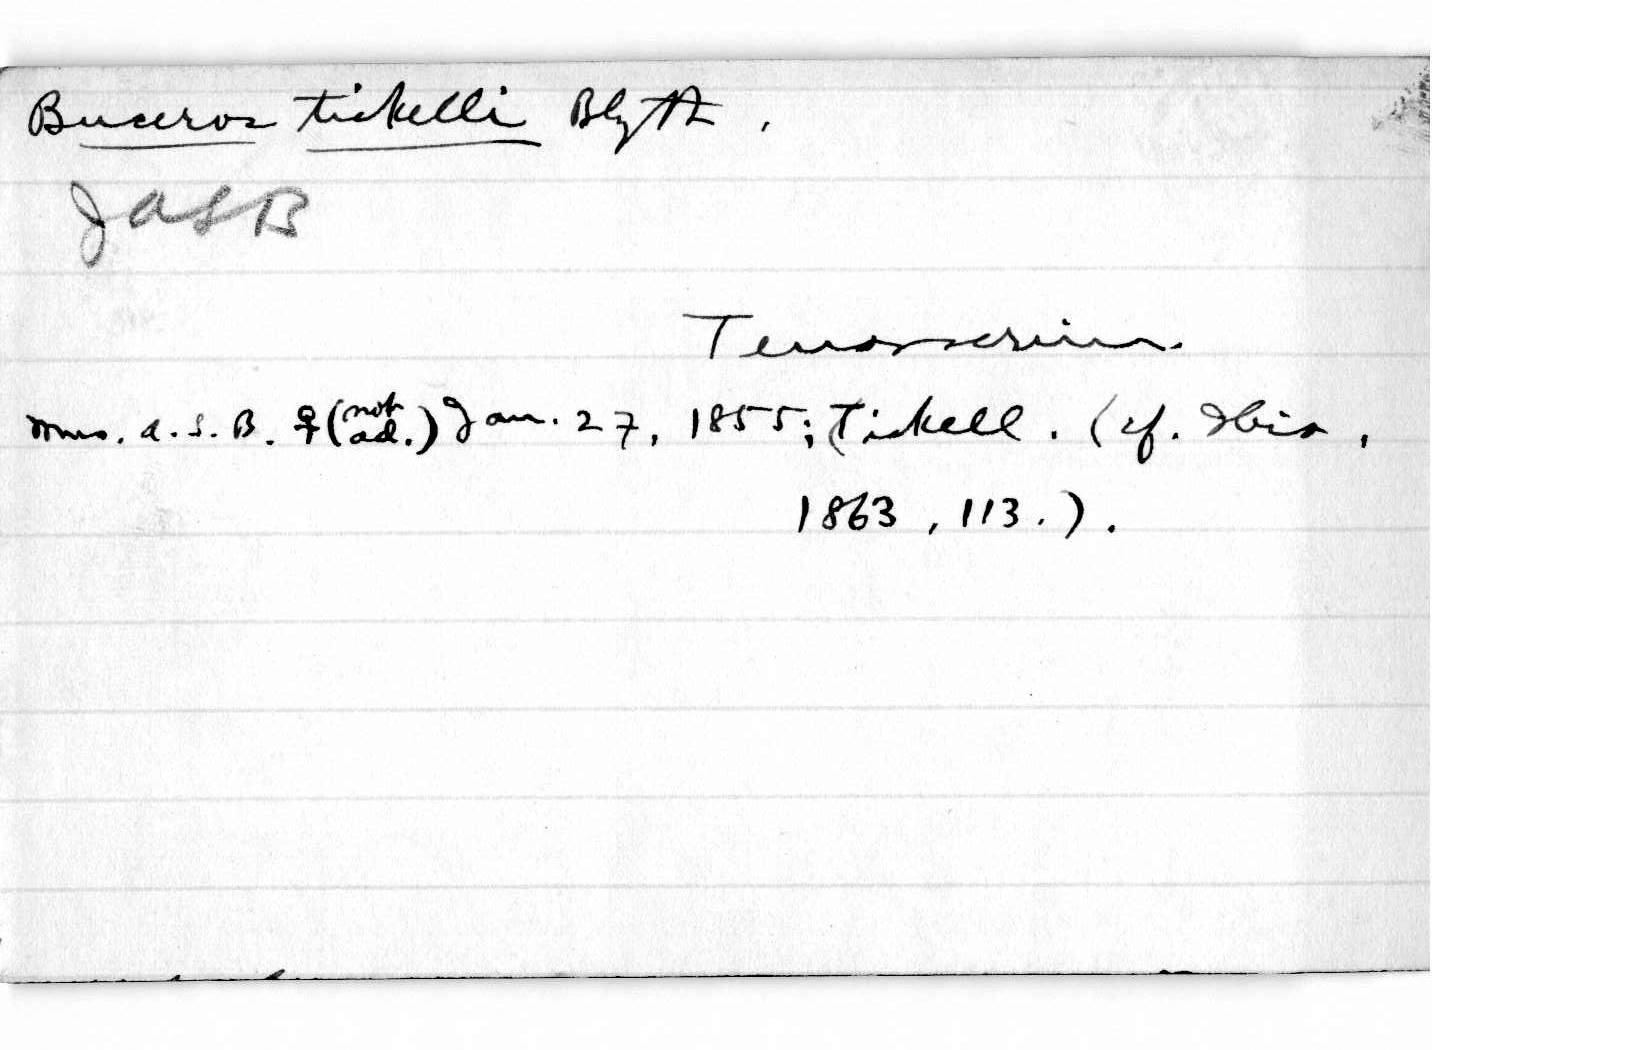 Buceros tickelli Blyth.
JASB
Tenasserim.
Mus. A.S.B. ♀ (not ad.) Jan. 27, 1855; Tickell. (cf. Ibis,
1863, 113.).